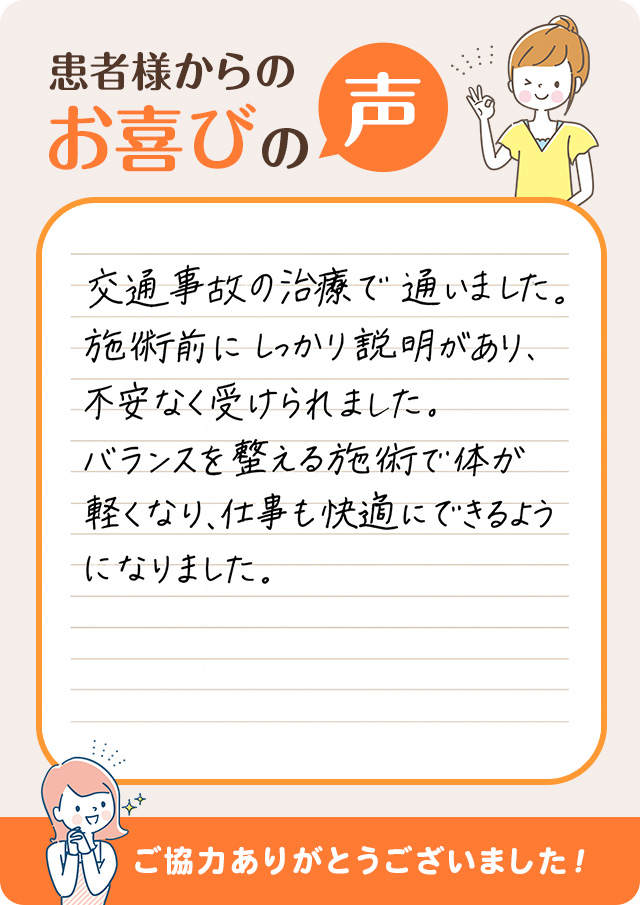 患者様からの
お喜びの声
交通事故の治療で通いました。
施術前にしっかり説明があり、
不安なく受けられました。
バランスを整える施術で体が
軽くなり、仕事も快適にできるよう
になりました。
ご協力ありがとうございました！